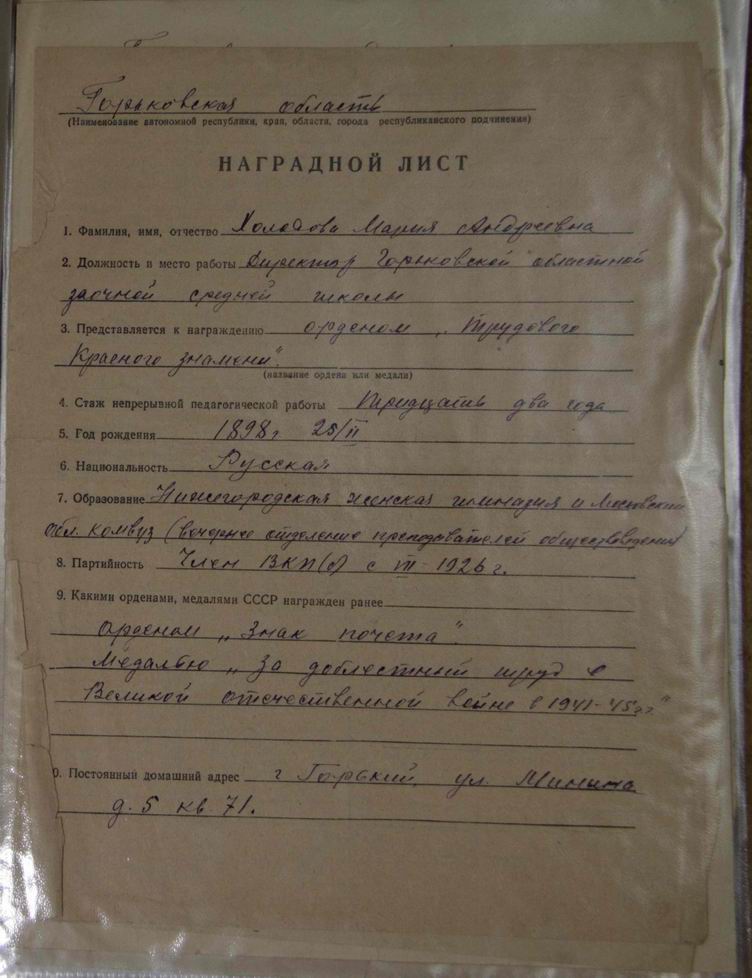 Горьковская область
(Наименование автономной республики, края, области, города республиканского подчинения)
НАГРАДНОЙ ЛИСТ
1. Фамилия, имя, отчество Холодова Мария Андреевна
2. Должность и место работы Директор Горьковской областной
заочной средней школы
3. Представляется к награждению орденом „Трудового
Красного знамени".
(название ордена или медали)
4. Стаж непрерывной педагогической работы Тридцать два года
5. Год рождения 1898 г 25/II
6. Национальность Русская
7. Образование Нижегородская женская гимназия и Московский
обл. комвуз (вечернее отделение преподавателей обществоведения)
8. Партийность Член ВКП(б) с III-1926 г.
9. Какими орденами, медалями СССР награжден ранее
орденом „Знак почета".
Медалью „За доблестный труд в
Великой отечественной войне в 1941-45 г.г."
0. Постоянный домашний адрес г Горький, ул. Минина
д. 5 кв 71.